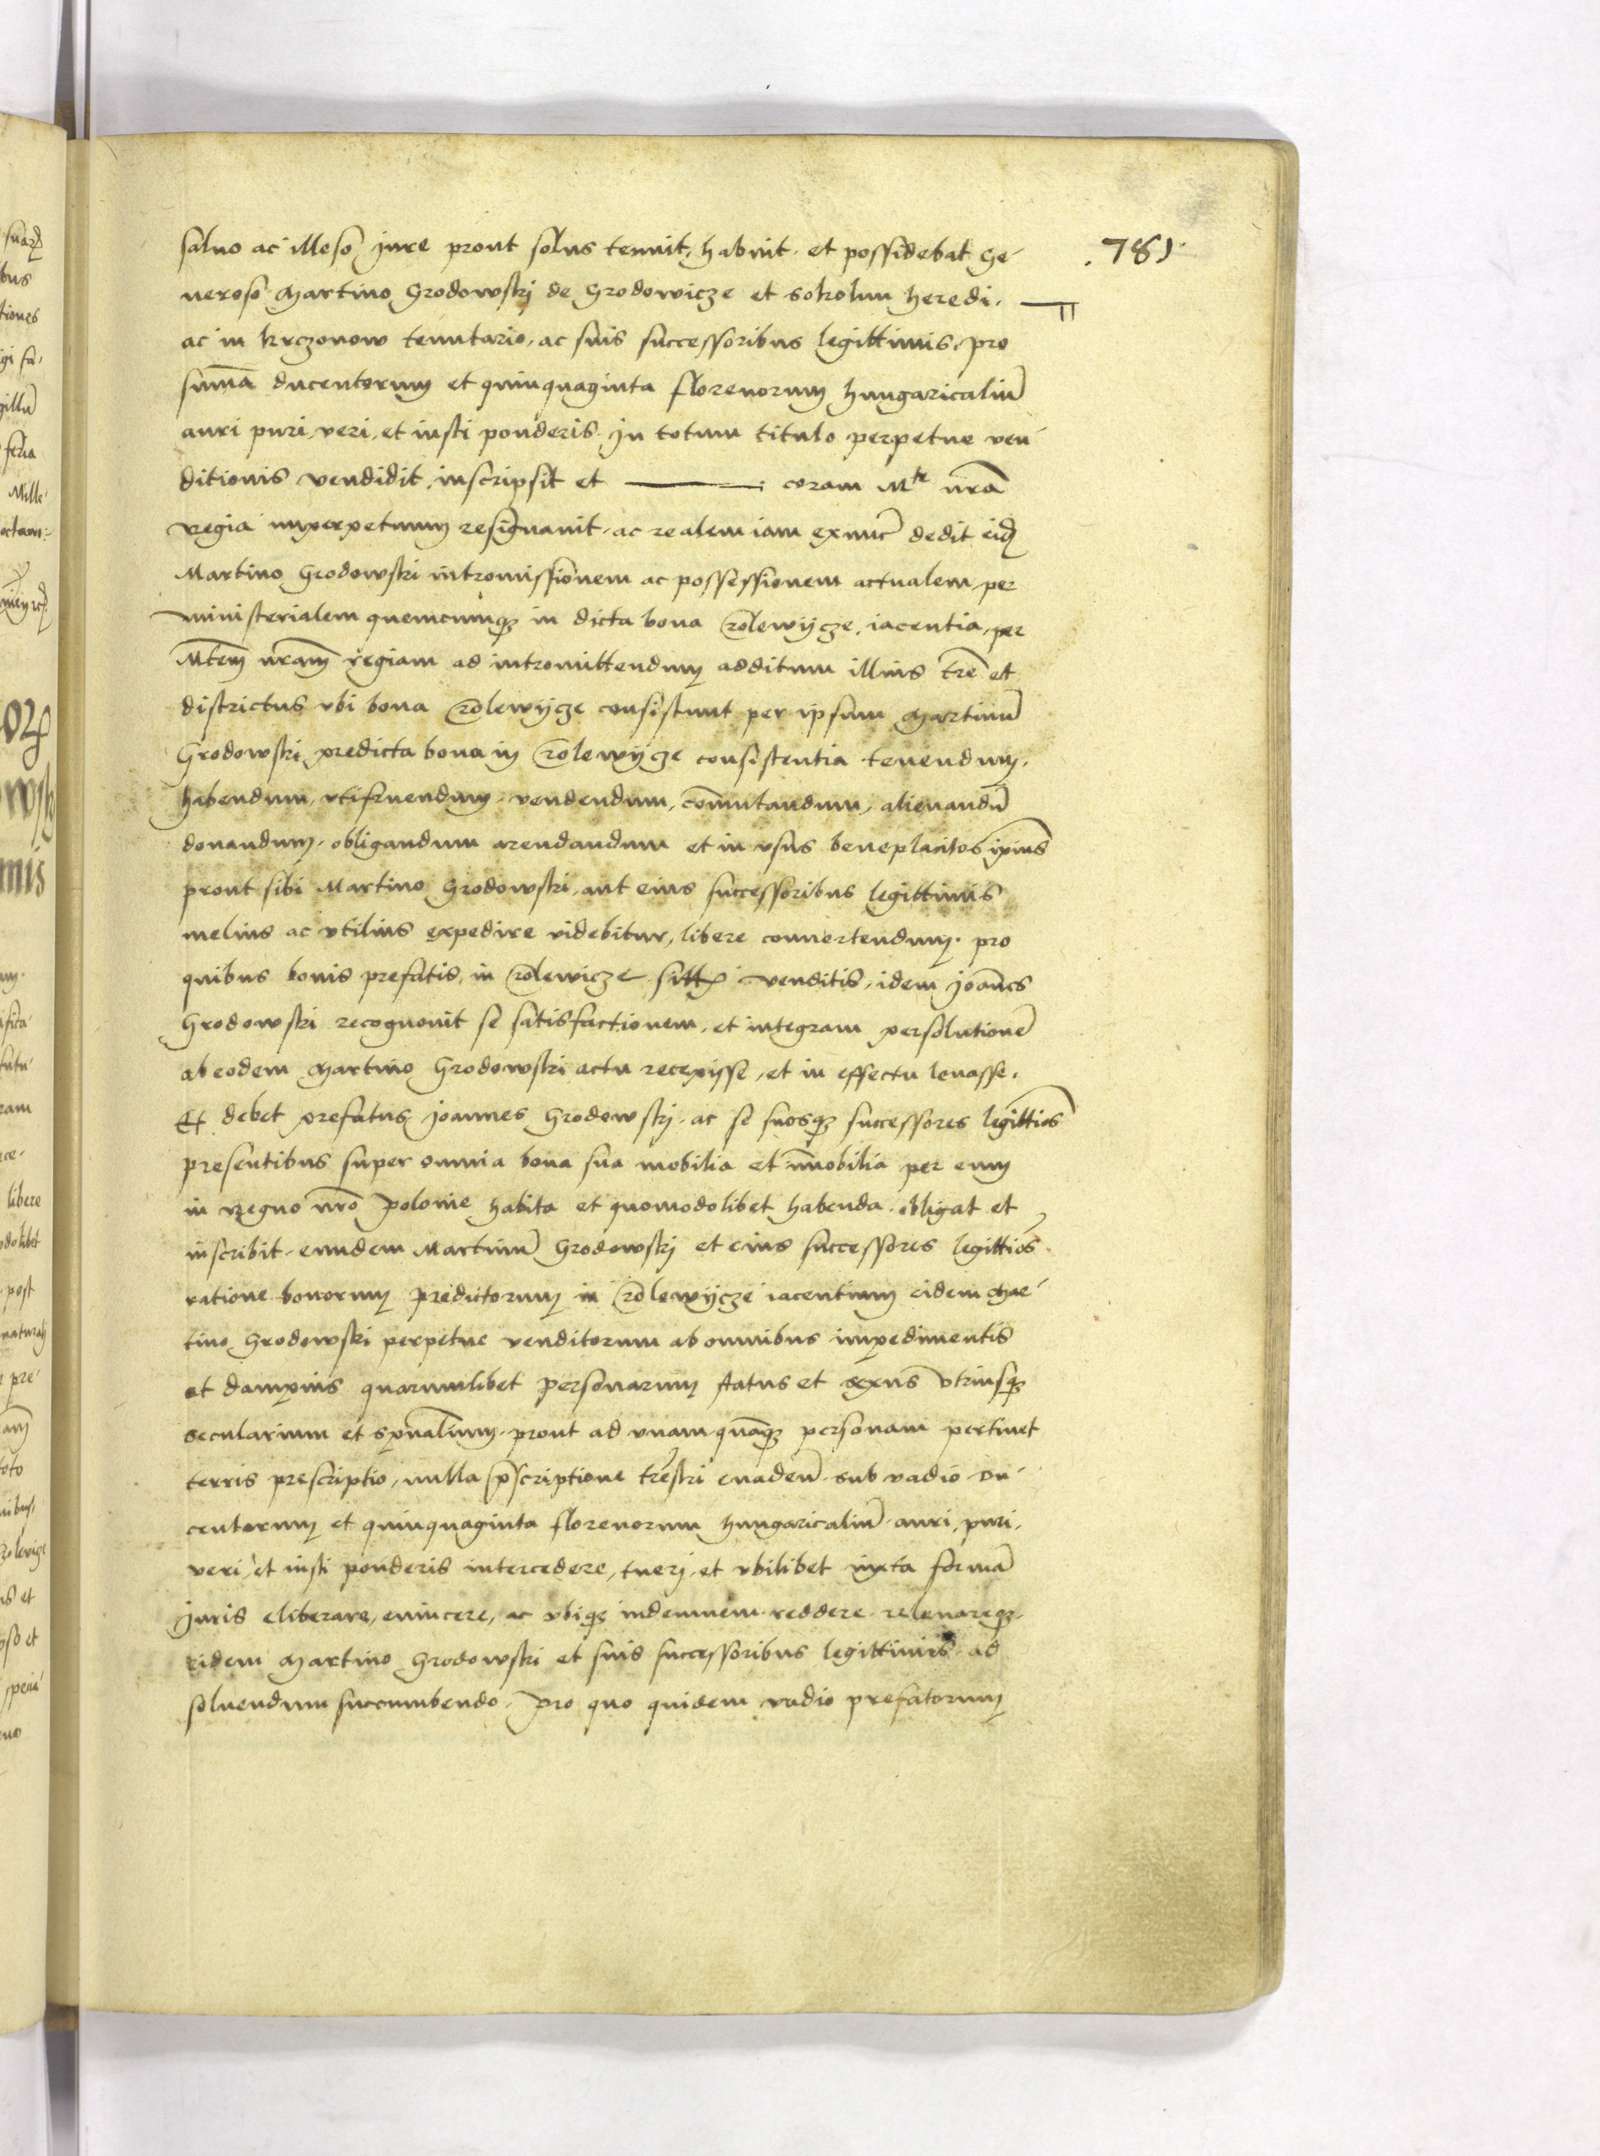 .781.
saluo ac illeso jure prout solus tenuit, habuit. et possidebat Ge-
neroso Martino Grodowskj de Grodowicze et Sokolun heredi.
ac in krczonow tenutario, ac suis successoribus legittimis, pro
sum̄a ducentorum et quinquaginta florenorum hungaricaliū
auri puri, veri, et iusti ponderis. Jn totum titulo perpetue ven-
ditionis vendidit, inscripsit et ——— coram Mte nr̄a
regia inperpetuum resignauit. ac realem iam exnūc dedit eidē
Martino Grodowski intromissionem ac possessionem actualem, per
ministerialem quemcumq in dicta bona rolewÿcze, iacentia, per
Mtem nr̄am regiam ad intromittendum additum illius tr̄e et
districtus vbi bona rolewÿcze consistunt per ipsum Martinū
Grodowski, predicta bona in rolewÿcze consistentia tenendum.
habendum, vtifruendum. vendendum, com̄utandum, alienandū
donandum. obligandum arendandum et in vsus beneplacitos ip̄ius
prout sibi Martino Grodowski, aut eius successoribus legittimis
melius ac vtilius expedire videbitur, libere conuertendum. pro
quibus bonis prefatis, in rolewicze sitis venditis, idem Joan̄es
Grodowski recognouit se satisfactionem, et integram persolutionē
ab eodem Martino Grodowski actu recepisse, et in effectu leuasse.
Et debet prefatus Joannes Grodowskj. ac se suosq successores legittios
presentibus super omnia bona sua mobilia et im̄obilia per eum
in regno nr̄o polonie habita et quomodolibet habenda. obligat et
inscribit. eundem Martinū Grodowskj et eius successores legittios.
ratione bonorum predictorum in rolewÿcze iacentium eidem Mar-
tino Grodowski perpetue venditorum ab omnibus impedimentis
et dampnis quarumlibet personarum status et sexus vtriusq
secularium et sp̄ualium. prout ad vnam quāq personam pertinet
terris prescriptio, nulla p̄scriptione tr̄estri euadeñ. sub vadio du-
centorum et quinquaginta florenorum hungaricaliū. auri, puri,
veri, et iusti ponderis intercedere, tuerj. et vbilibet iuxta formā
Juris eliberare, euincere, ac vbiq indemnem reddere releuareq.
eidem Martino Grodowski et suis successoribus legittimis ad
soluendum succumbendo. Pro quo quidem vadio prefatorum